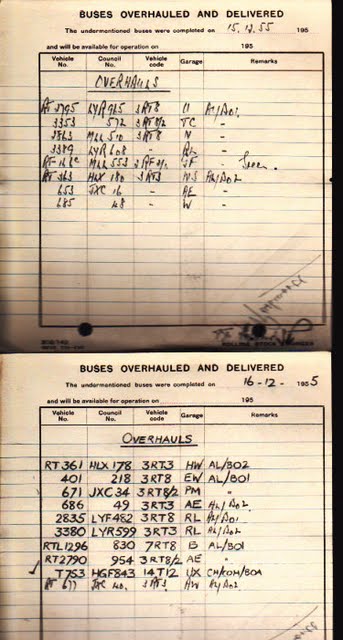 BUSES OVERHAULED AND DELIVERED
The undermentioned buses were completed on 15.12.55 195
and will be available for operation on 195
Vehicle No. Council No. Vehicle code Garage Remarks
OVERHAULS
RT 3795 LYR 965 3RT8 U AL/A01.
3353 572 3RT8/2 TC "
3563 MLL 510 3RT8 N "
3389 LYR 608 " RL "
MLL 553
RT 363 HLX 180 3RT3 NS AL/A02
653 JXC 16 - AE -
685 48 - W -
ROLLING STOCK ENGINEER
BUSES OVERHAULED AND DELIVERED
The undermentioned buses were completed on 16-12- 1955
and will be available for operation on 195
Vehicle No. Council No. Vehicle code Garage Remarks
OVERHAULS
RT 361 HLX 178 3RT3 HW AL/BO2
401 218 3RT8 EW AL/BO1
671 JXC 34 3RT8/2 PM "
686 49 3RT3 AE AL/A02.
2835 LYF 482 3RT8 RL AL/A01
3380 LYR 599 3RT3 RL AL/A02.
RTL 1296 830 7RT8 B AL/BO1
RT 2790 954 3RT8/2 AE "
T753 HGF843 14T12 UX CM/OM/BOA
RT 677 JXC 40. 3RT3. HW AL/A02.